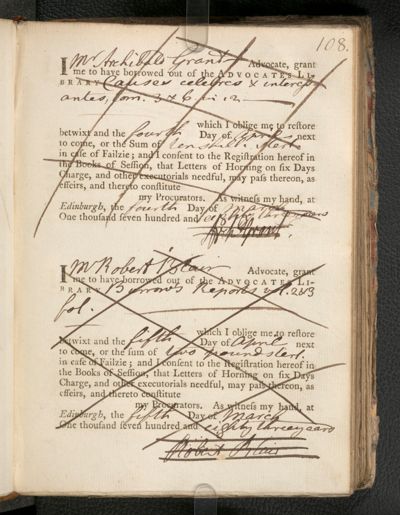 108.
I Mr Archibald Grant Advocate, grant
me to have borrowed out of the ADVOCATES LI-
BRARY Causes celebres & interess
antes, tom. 3 & 6 in 12
which I oblige me to restore
betwixt and the fourth Day of April next
to come, or the Sum of Ten shill. sterl
in case of Failzie; and I consent to the Registration hereof in
the Books of Session, that Letters of Horning on six Days
Charge, and other executorials needful, may pass thereon, as
effeirs, and thereto constitute
my Procurators. As witness my hand, at
Edinburgh, the fourth Day of March
One thousand seven hundred and eighty three years
Arch Grant.
I Mr Robert Blair Advocate, grant
me to have borrowed out of the ADVOCATES LI-
BRARY Burrows Reports vol. 2 & 3
fol.
which I oblige me to restore
betwixt and the fifth Day of April next
to come, or the sum of two pound sterl.
in case of Failzie; and I consent to the Registration hereof in
the Books of Session, that Letters of Horning on six Days
Charge, and other executorials needful, may pass thereon, as
effeirs, and thereto constitute
my Procurators. As witness my hand, at
Edinburgh, the fifth Day of March
One thousand seven hundred and eighty three years
Robert Blair